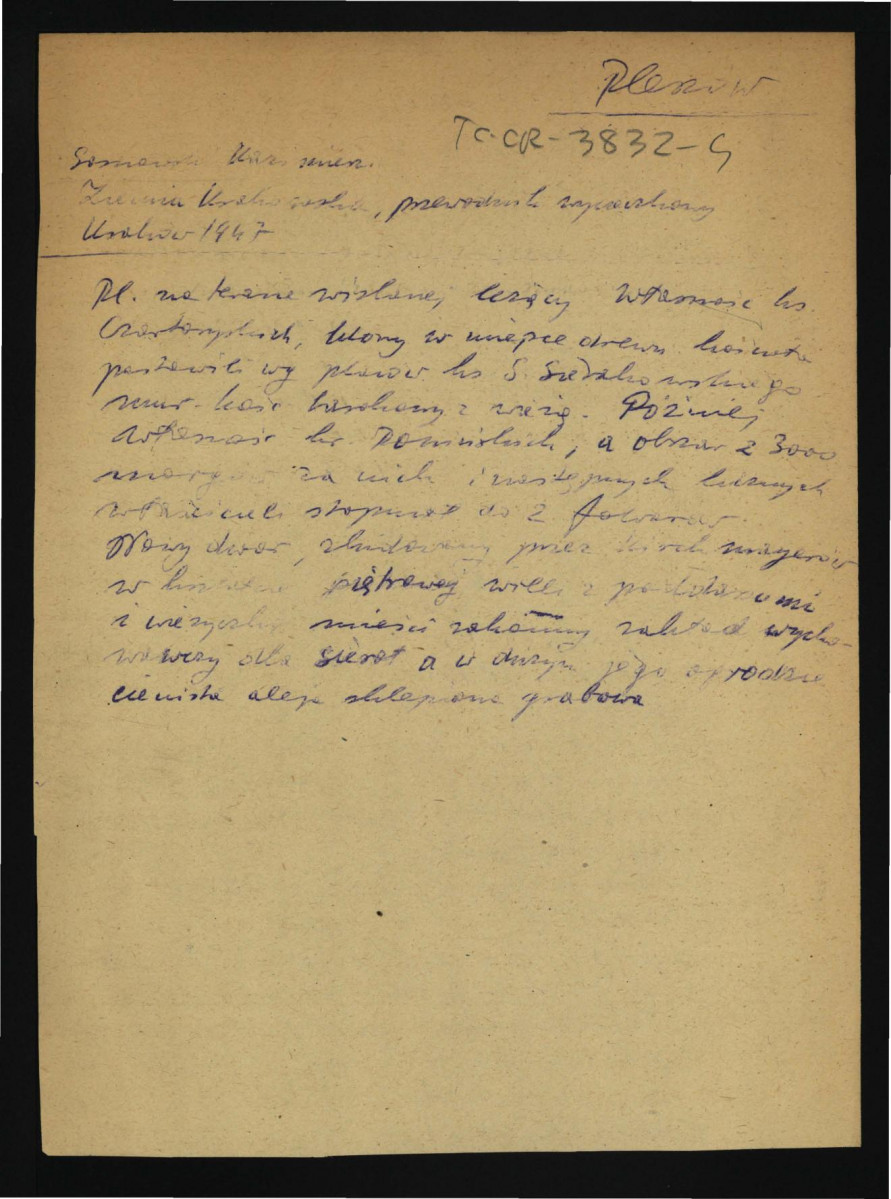 Pleszów
TG-CR-3832-G
Sosnowski Kazimierz.
Ziemia Krakowska, przewodnik wycieczkowy
Kraków 1947
Pl. na terasie wiślanej leżący własność ks.
Czartoryskich, którzy w miejsce drewn. kościoła
postawili wg planów ks S. Sierakowskiego
mur. kośc barokowy z wieżą. Później
własność hr. Ponińskich, a obszar z 3000
morgów za nich i następnych licznych
właścicieli stopniał do 2 folwarów.
Nowy dwór, zbudowany przez Kirchmayerów
w kształcie piętrowej willi z poddaszami
i wieżyczką mieści zakonny zakład wycho-
wawczy dla sierot a w dużym jego ogrodzie
cienista aleja sklepiona grabowa